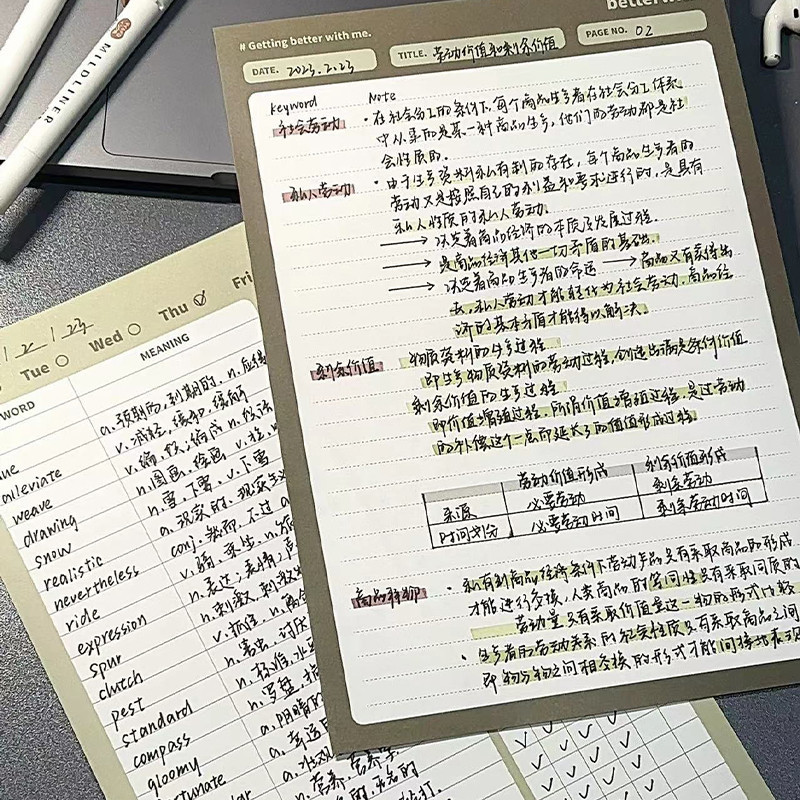 MILDLINER
# Getting better with me.
DATE. 2023.2.23
TITLE. 劳动价值和剩余价值
PAGE NO. 02
keyword Note
社会劳动 · 在社会分工的条件下,每个商品生产者在社会分工体系
中从事的是某一种商品生产,他们的劳动都是社
会性质的.
私人劳动 · 由于生产资料私有制的存在,每个商品生产者的
劳动又是按照自己的利益和要求进行的,是具有
私人性质的私人劳动.
→ 决定着商品经济的本质及发展过程.
→ 是商品经济其他一切矛盾的基础.
→ 决定着商品生产者的命运 → 商品又有卖得出
去,私人劳动才能转化为社会劳动,商品经
济的基本矛盾才能得以解决.
剩余价值 物质资料的生产过程
即生产物质资料的劳动过程,创造出满足条件价值
剩余价值的生产过程
即价值增殖过程,所谓价值增殖过程,是过劳动
的补偿这个一点而延长了的价值形成过程.
劳动价值形成 剩余价值形成
来源 必要劳动 剩余劳动
时间划分 必要劳动时间 剩余劳动时间
商品拜物 · 私有制商品经济条件下劳动产品只有采取商品的形式
才能进行交换,人类商品的等同性只有采取同质的
劳动量,只有采取价值量这一物的形式比较
· 生产者的劳动关系的社会性质只有采取商品之间
即物与物之间相交换的形式才能间接地表现
2 / 23
Tue Wed Thu Fri
WORD MEANING
a. 预期的,到期的. n. 应得
alleviate v. 减轻,缓和,缓解
weave v. 编,织;编成
drawing n. 图画,绘画
snow n. 雪,下雪. v. 下雪
realistic a. 现实的,现实主义
nevertheless conj. 然而,不过
ride v. 骑,乘坐
expression n. 表达,表情
spur n. 刺激
clutch v. 抓住
pest n. 害虫,讨厌
standard n. 标准,水
compass n. 罗盘,指
gloomy a. 阴暗的
a. 幸运
n. 营养,营养学